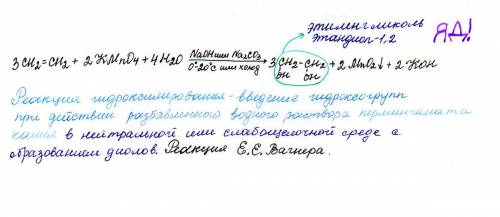 этиленгликоль
этандиол-1,2
ЯД!
3CH2-CH2 + 2KMnO4 + 4H2O NaOH или Na2CO3 0°-20°C или холод → 3CH2-CH2 + 2MnO2↓ + 2KOH
OH OH
Реакция гидроксилирования - введение гидроксогрупп
при действии разбавленного водного раствора перманганата
калия в нейтральной или слабощелочной среде с
образованием диолов. Реакция Е.Е. Вагнера.